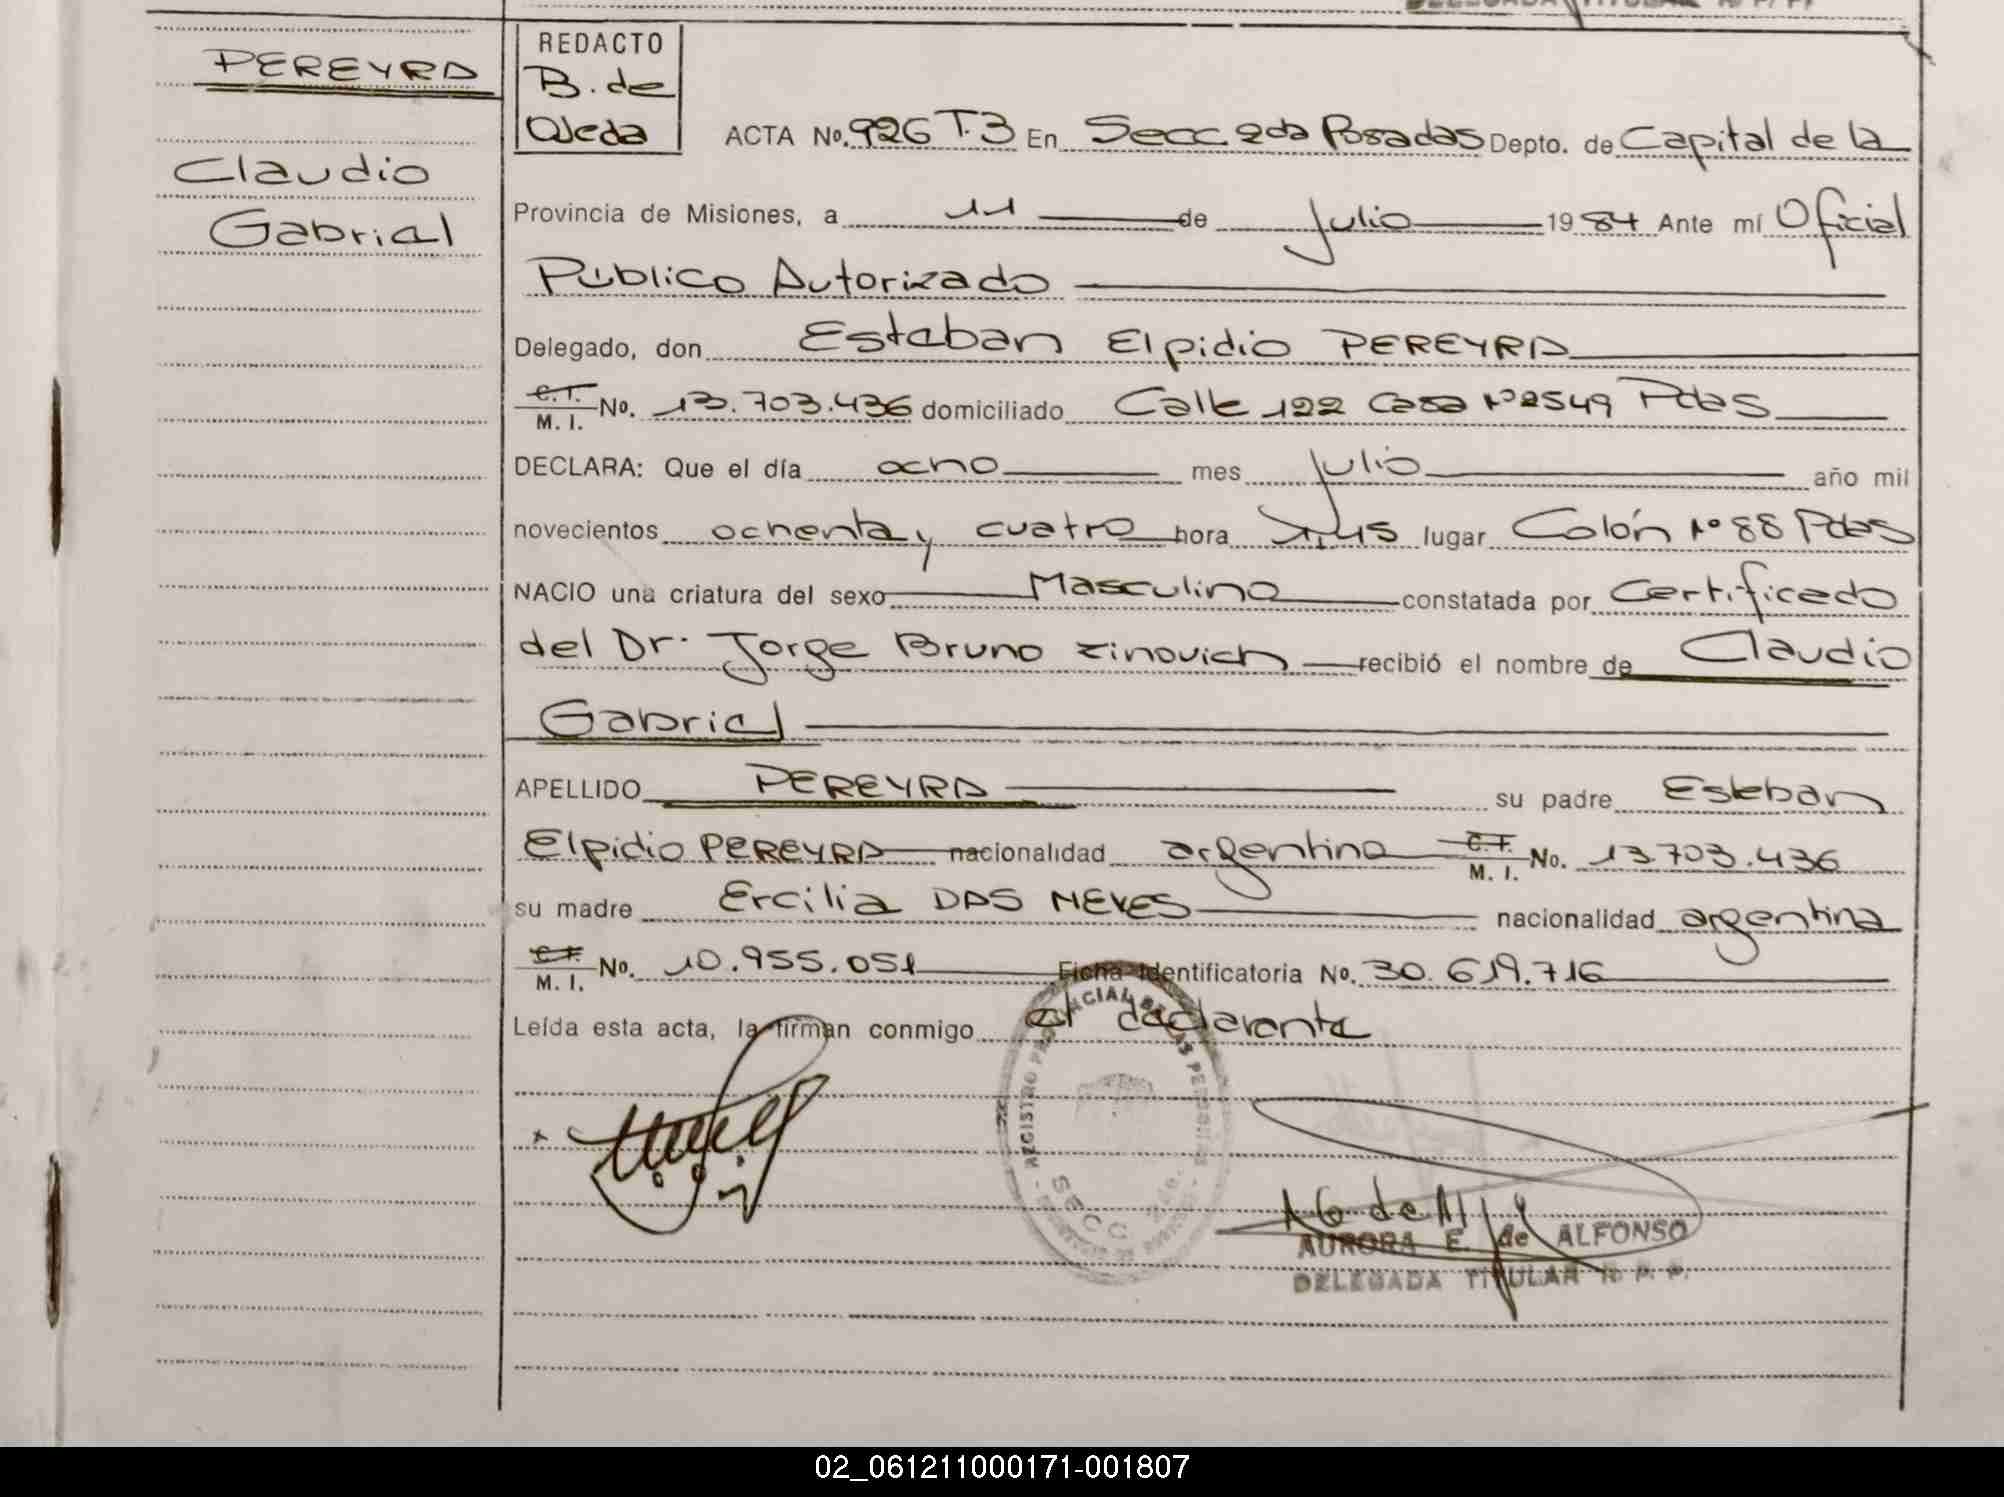 PEREYRA
Claudio
Gabriel
REDACTO
B. de
Ojeda
ACTA No. 926 T.3 En Secc 2da Posadas Depto. de Capital de la
Provincia de Misiones, a 11 de Julio 1984 Ante mí Oficial
Público Autorizado
Delegado, don Esteban Elpidio PEREYRA
C.I.
M. I. No. 13.703.436 domiciliado Calle 122 Casa Nº 2549 Pdas
DECLARA: Que el día ocho mes Julio año mil
novecientos ochenta y cuatro hora lugar Colón Nº 88 Pdas
NACIO una criatura del sexo Masculino constatada por Certificado
del Dr. Jorge Bruno Zinovich recibió el nombre de Claudio
Gabriel
APELLIDO PEREYRA su padre Esteban
Elpidio PEREYRA nacionalidad argentina C.I.
M. I. No. 13.703.436
su madre Ercilia DAS NEVES nacionalidad argentina
M. I. No. 10.955.051 Ficha Identificatoria No. 30.619.716
Leída esta acta, la firman conmigo el declarante
REGISTRO PROVINCIAL DE LAS PERSONAS
SECC 2da.
AURORA E. de ALFONSO
DELEGADA TITULAR R. P. P.
02_061211000171-001807